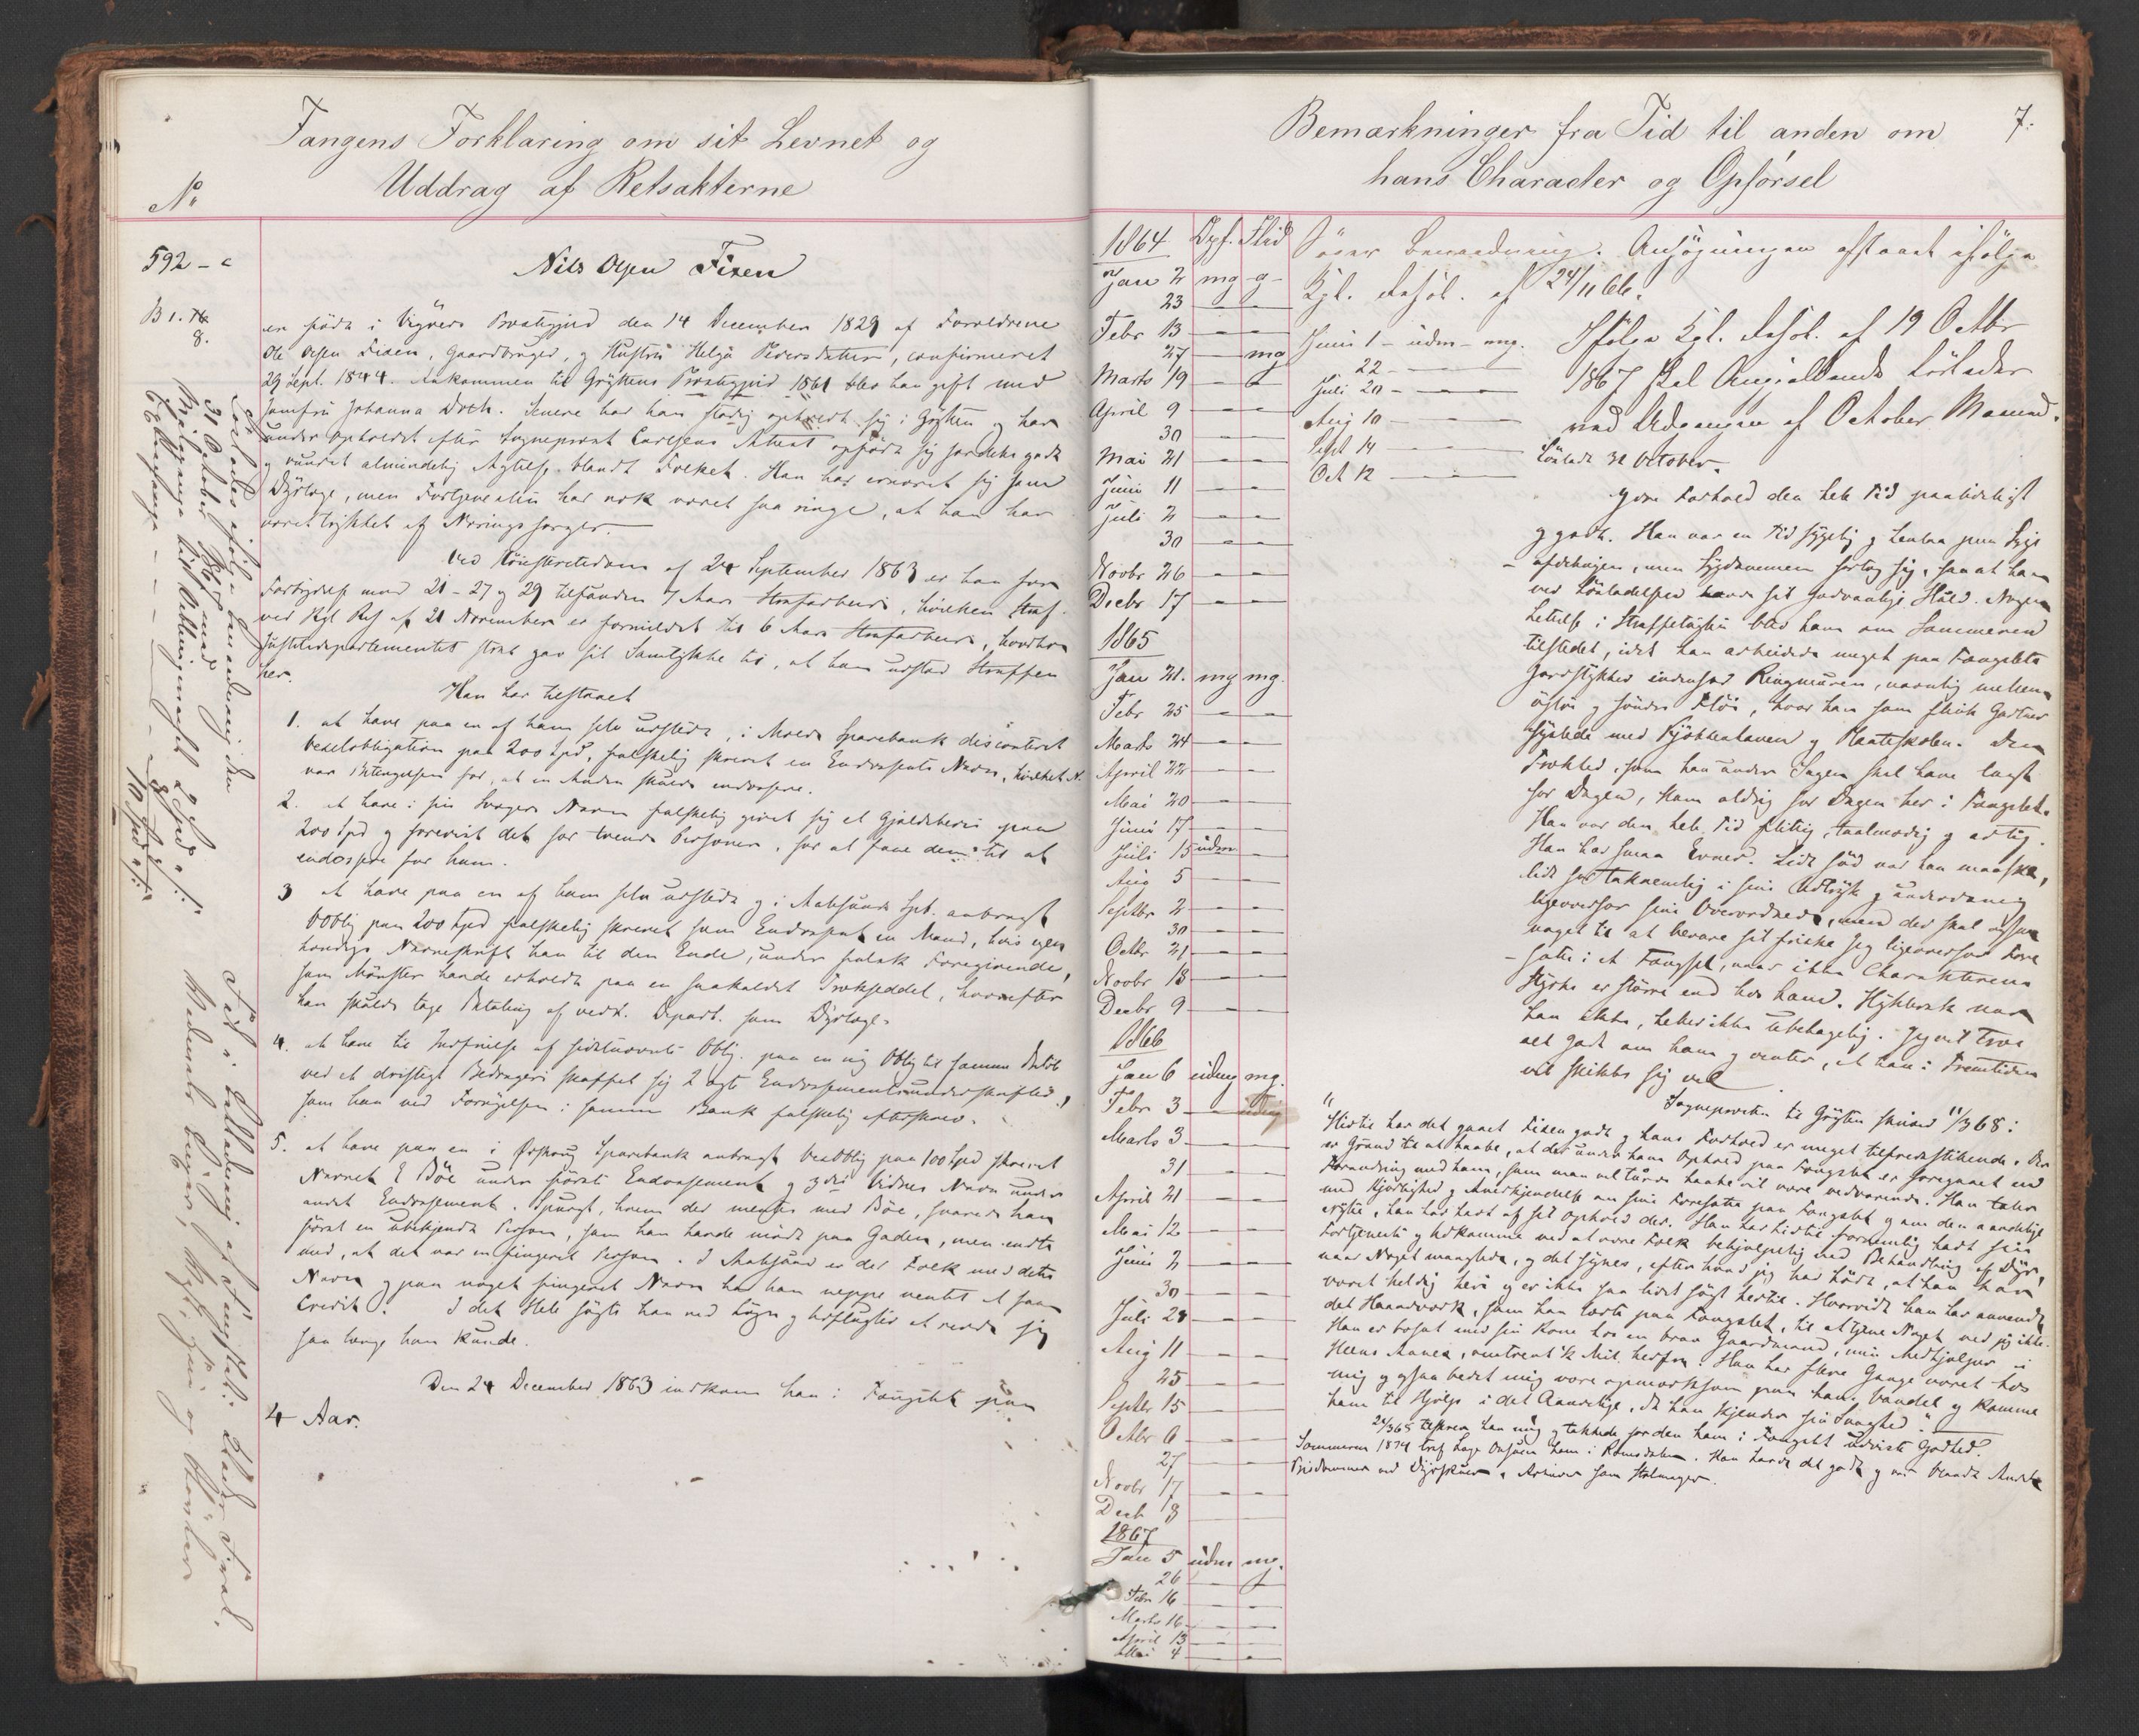 Fangens Forklaring om sit Levnet og
Uddrag af Retsakterne
No
592 - c
B 1. 76
8.
Nils Olsen Fixen
er født i Vigørs Præstegjeld den 14 December 1829 af Forældrene
Ole Olsen Fixen, Gaardbruger, og Hustru Helga Pedersdatter, confirmeret
29 Sept. 1844. Ankommen til Grÿttens Præstegjeld 1861 blev han gift med
Jomfru Johanna Dock. Senere har han stadig opholdt sig i Grÿtten og har
under Opholdet efter Sogneprest Carlsens Attest opført sig særdeles godt
og vundet almindelig Agtelse blandt Folket. Han har ernæret sig som
Dÿrlæge, men Fortjenesten har nok været saa ringe, at han har
været trykket af Næringssorger.
Ved Høiesteretsdom af 24 September 1863 er han for
Forbrydelse mod 21 - 27 og 29 tilfunden 7 Aars Strafarbeide, hvilken Straf
ved Kgl Res af 21 November er formildet til 6 Aars Strafarbeide, hvorhos
Justitsdepartementet strax gav sit Samtykke til, at han udstod Straffen
her.
Han har tilstaaet
1. at have paa en af ham selv udstedt, i Molde Sparebank disconteret
Vexelobligation paa 200 Spd, falskelig skrevet en Endossents Navn, hvilket
var Betingelsen for, at en Anden skulde endossere.
2. at have i sin Svogers Navn falskelig givet sig et Gjeldsbevis paa
200 Spd og forevist det for trende Personer, for at faae dem til at
endossere for ham.
3 at have paa en af ham selv udstedt og i Aalesunds Spb. anbragt
VOblig paa 200 Spd falskelig skrevet som Endossent en Mand, hvis egen
hændige Navneskrift han til den Ende, under falsk Foregivende,
som Mønster havde erholdt paa en saakaldet Trækseddel, hvorefter
han skulde tage Betaling af vedk. Depart. som Dÿrlæge.
4. at have til Indfrielse af sidstnævnte Oblig. paa en ny Oblig til samme Beløb
ved et dristigt Bedrageri skaffet sig 2 ægte Endossementsunderskrifter,
som han ved Fornyelsen i samme Bank falskelig efterskrev.
5. at have paa en i Ørskoug Sparebank anbragt VexOblig paa 100 Spd skrevet
Navnet E Böe under første Endossement og 3die Vidnes Navn under
andet Endossement. Spurgt, hvem der mentes med Böe, svarede han
først en ubekjendt Person, som han havde mødt paa Gaden, men endte
med, at det var en fingeret Person. I Aalesund er der Folk med dette
Navn og paa noget fingeret Navn har han neppe ventet at faae
Credit. I det Hele søgte han ved Løgn og Udflugter at redde sig
saa længe han kunde.
Den 24 December 1863 indkom han i Fængslet paa
4 Aar.
Løslades ifølge Benaadning den
31 October 1867 med
Bemærkninger fra Tid til anden om
hans Character og Opførsel
7.
1864 Opf. Flid
Jan 2 mg g
23 — —
Febr 13 — —
27 — mg
Marts 19 — —
April 9 — —
30 — —
Mai 21 — —
Juni 11 — —
Juli 2 — —
30 — —
Novbr 26 — —
Decbr 17 — —
1865
Jan 21. mg mg.
Febr 25 — —
Marts 24 — —
April 22 — —
Mai 20 — —
Juni 17 — —
Juli 15 udm —
Aug 5 — —
Septbr 2 — —
30 — —
Octbr 21 — —
Novbr 18 — —
Decbr 9 — —
1866
Jan 6 udmg mg.
Febr 3 — udmg
Marts 3 — —
31 — —
April 21 — —
Mai 12 — —
Juni 2 — —
30 — —
Juli 28 — —
Aug 11 — —
25 — —
Septbr 15 — —
Octbr 6 — —
27 — —
Novbr 17 — —
Decb 8 — —
1867
Jan 5 udm mg.
26 — —
Febr 16 — —
Marts 16 — —
April 13 — —
Mai 4 — —
Søger Benaadning. Ansøgningen afslaaet ifølge
Kgl. Resol. af 24/11 66.
Juni 1 - udm - mg.
22 —
Juli 20 —
Aug 10 —
Sept 14 —
Oct 12 —
Ifølge Kgl. Resol. af 19 Octbr
1867 skal Angjældende løslades
ved Udgangen af October Maaned.
Løsladt 31 October.
Hans Forhold den hele Tid paalideligt
og godt. Han var en Tid sygelig og henlaa paa Syge
- afdelingen, men Sygdommen fortog sig, saa at han
ved Løsladelsen havde sit sædvanlige Huld. Nogen
Lettelse i Straffetugten blev ham om Sommeren
tilstedet, idet han arbeidede meget paa Fængslets
Jordstykker indenfor Ringmuren, navnlig mellem
østre og søndre Fløi, hvor han som flink Gartner
syslede med Kjøkkenhaven og Planteskolen. Den
Frækhed, som han under Sagen skal have lagt
for Dagen, kom aldrig for Dagen her i Fængslet.
Han var den hele Tid flittig, taalmodig og artig.
Han har smaa Evner. Lidt sød var han maaske,
lidt for taknemlig i sine Udtryk og underdanig
ligeoverfor sine Overordnede, men der skal ogsaa
noget til at bevare sit friske Jeg ligeoverfor Fore
- satte i et Fængsel, naar ikke Charakterens
Styrke er større end hos ham. Hyklersk var
han ikke, heller ikke ubehagelig. Jeg vil troe
alt godt om ham og venter, at han i Fremtiden
vil skikke sig vel
Sognepresten til Grÿtten skriver 11/3 68:
"Hidtil har det gaaet Fixen godt og hans Forhold er meget tilfredsstillende. Der
er Grund til at haabe, at der under hans Ophold paa Fængslet er foregaaet en
Forandring med ham, som man vel tør haabe vil være vedvarende. Han taler
med Kjærlighed og Anerkjendelse om sine Foresatte paa Fængslet og om den aandelige
Nytte, han har havt af sit Ophold der. Han har hidtil fornemlig havt sin
Fortjeneste og Udkomme ved at være Folk behjælpelig med Behandling af Dÿr,
naar Noget mangledes, og det synes, efter hvad jeg har hørt, at han har
været heldig heri og er ikke saa lidet søgt hertil. Hvorvidt han har anvendt
det Haandværk, som han lærte paa Fængslet, til at tjene Noget ved jeg ikke.
Han er bosat med sin Kone hos en brav Gaardmand, min Medhjælper i
Heens Annex, omtrent ½ Mil herfra. Han har flere Gange været hos
mig og ogsaa bedet mig være opmærksom paa hans Vandel og komme
ham til Hjelp i det Aandelige, da han kjender sin Svaghed."
tilskrev han mig og takkede for den ham i Fængslet udviste Godhed.
Sommeren 1874 traf Læge Onsum ham i Romsdalen. Han havde det godt og var blandt Andet
Prisdommer ved Dÿrskuer.